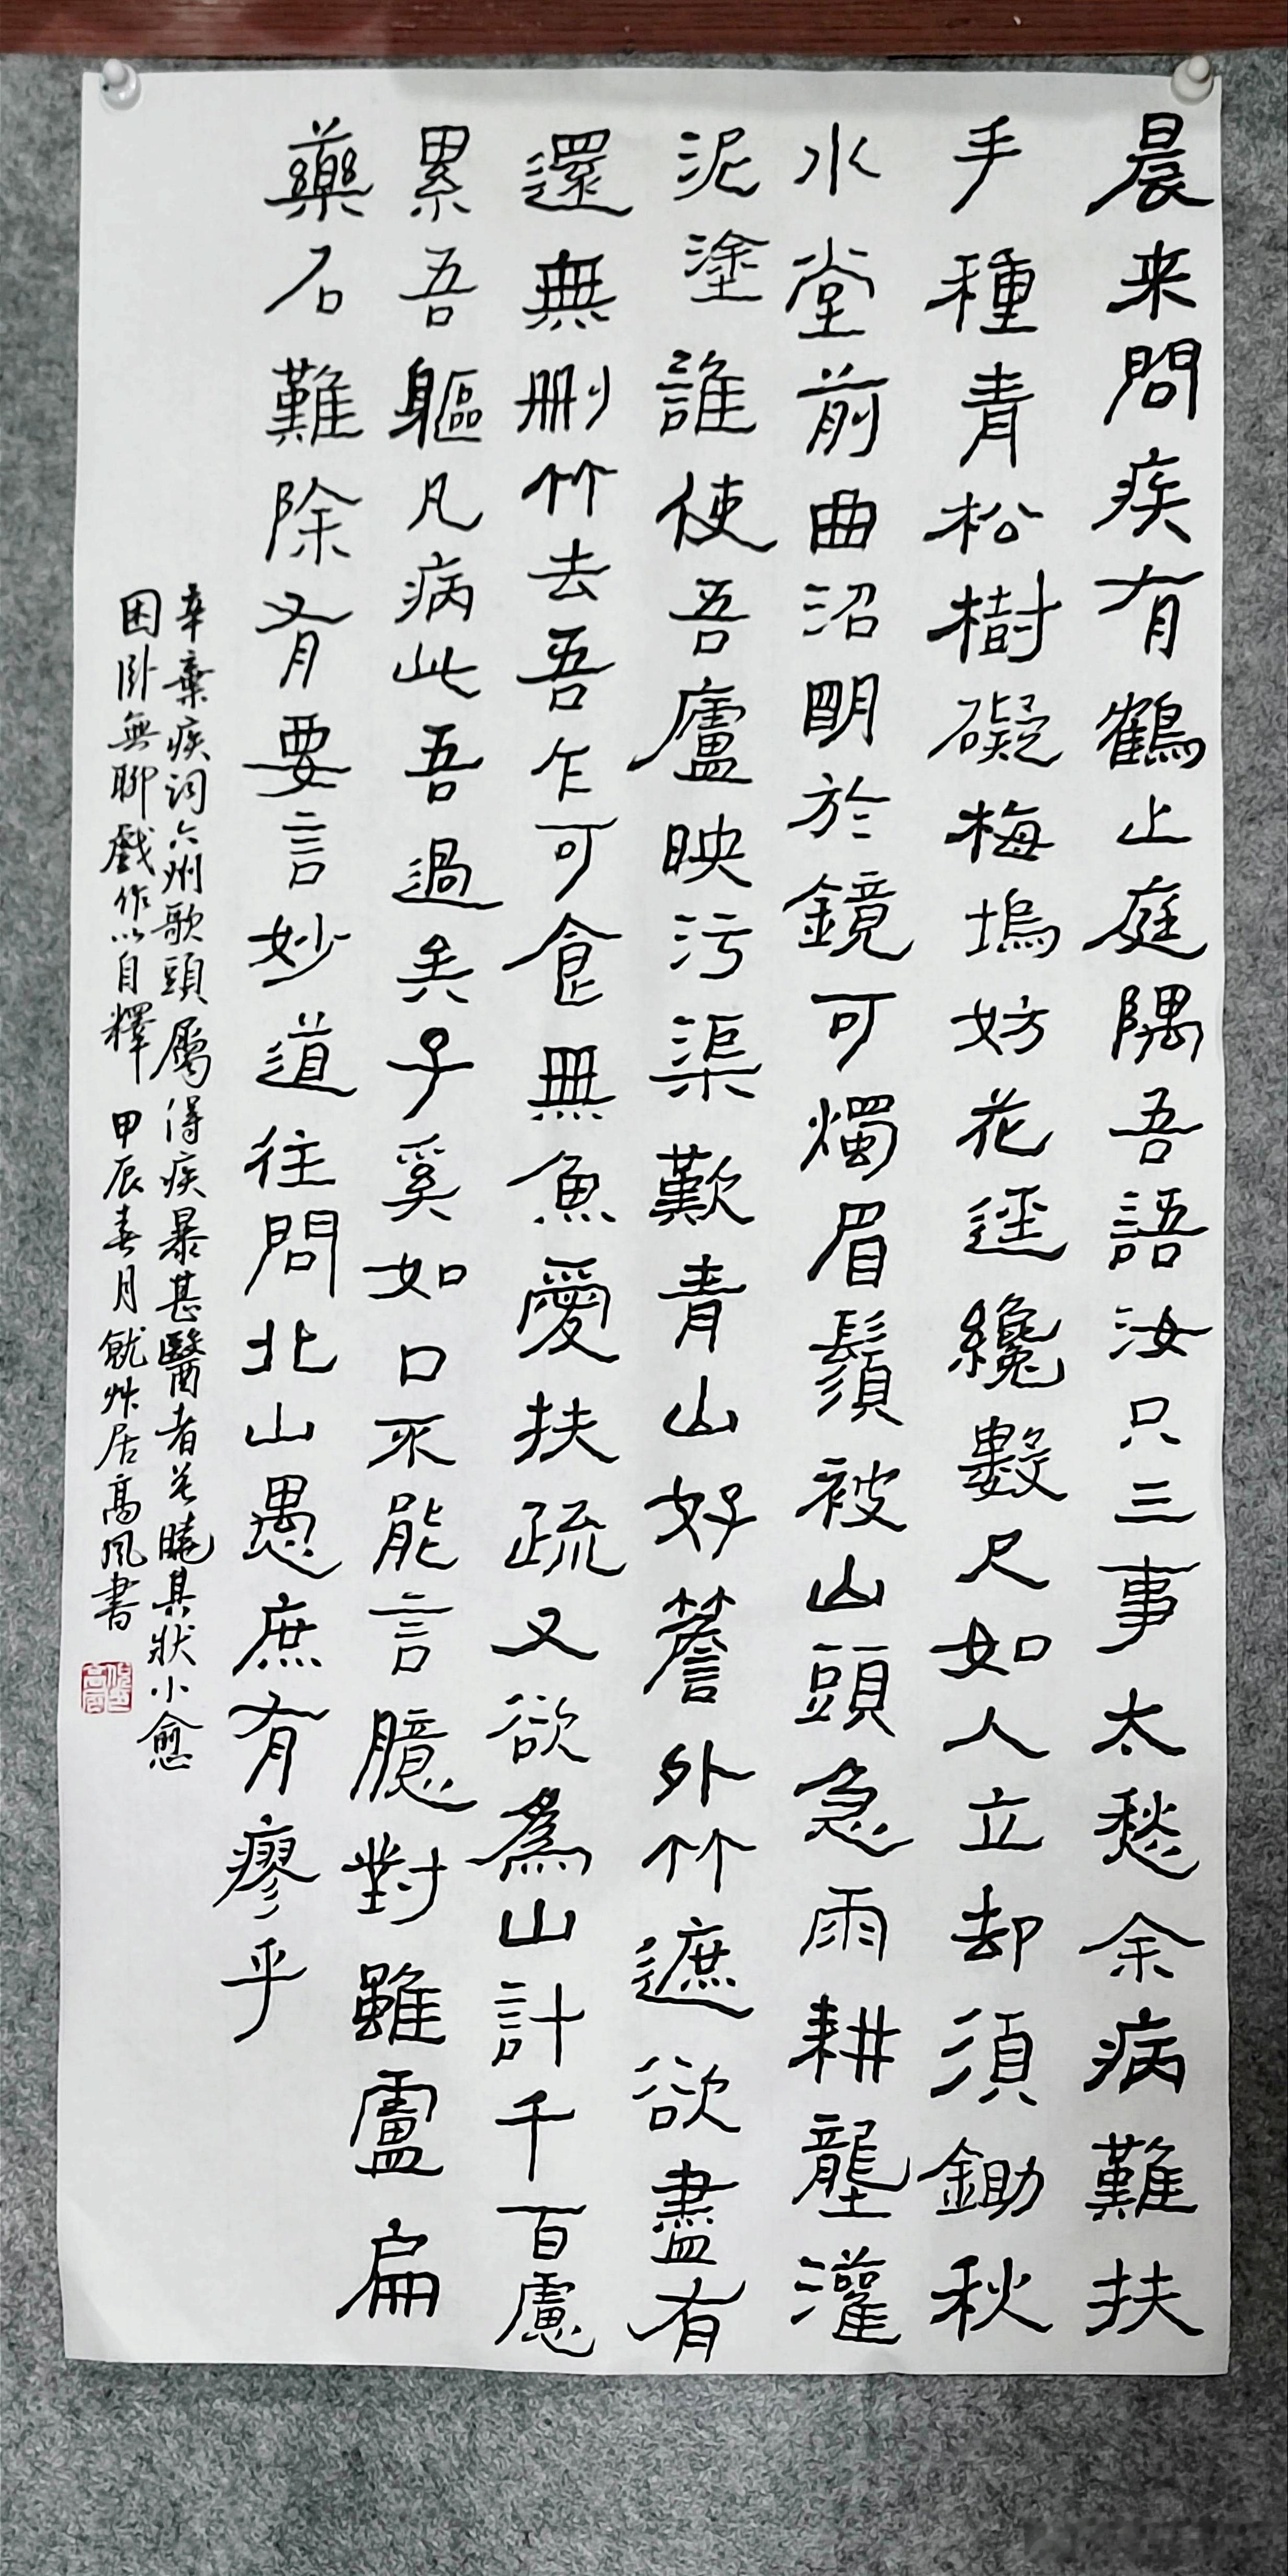 晨来問疾有鶴止庭隅吾語汝只三事太愁余病難扶
手種青松樹礙梅塢妨花逕纔數尺如人立却須鋤秋
水堂前曲沼明於鏡可燭眉鬚被山頭急雨耕壟灌
泥塗誰使吾廬映污渠歎青山好簷外竹遮欲盡有
還無刪竹去吾乍可食無魚愛扶疏又欲為山計千百慮
累吾軀凡病此吾過矣子奚如口不能言臆對雖盧扁
藥石難除有要言妙道往問北山愚庶有瘳乎
辛棄疾詞六州歌頭屬得疾暴甚醫者莫曉其狀小愈
困卧無聊戲作以自釋 甲辰春月就艸居高风書